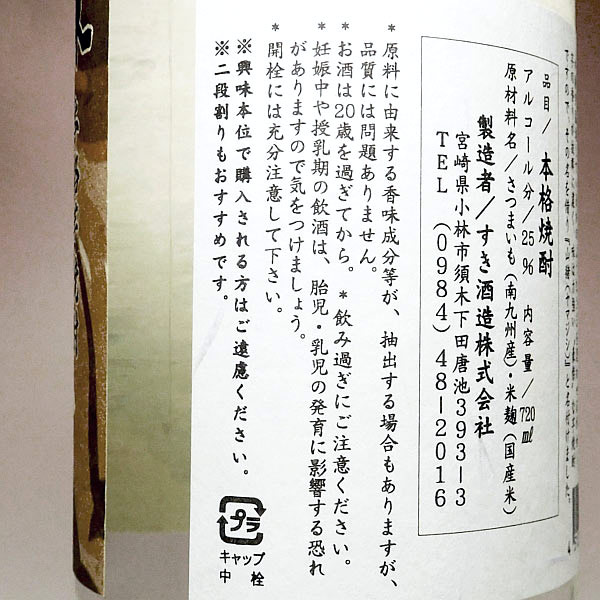 すその為、その名を借り『山猪(ヤマジシ)』と名付けました。
品目/本格焼酎
アルコール分/25% 内容量/720ml
原材料名/さつまいも(南九州産)・米麹(国産米)
製造者/すき酒造株式会社
宮崎県小林市須木下田唐池393-3
TEL (0984)48-2016
*原料に由来する香味成分等が、抽出する場合もありますが、
品質には問題ありません。
*お酒は20歳を過ぎてから。 *飲み過ぎにご注意ください。
*妊娠中や授乳期の飲酒は、胎児・乳児の発育に影響する恐れ
がありますので気をつけましょう。
*開栓には充分注意して下さい。
※興味本位で購入される方はご遠慮ください。
※二段割りもおすすめです。
プラ
キャップ
中栓